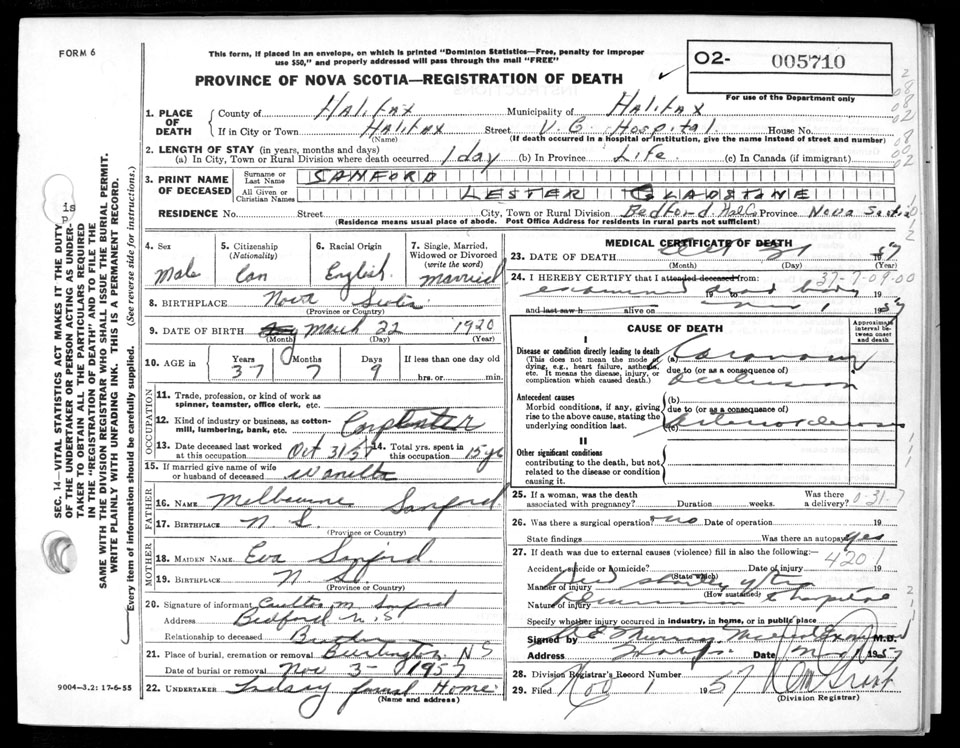 FORM 6
This form, if placed in an envelope, on which is printed "Dominion Statistics—Free, penalty for improper
use $50," and properly addressed will pass through the mail "FREE"
O2- 005710
PROVINCE OF NOVA SCOTIA—REGISTRATION OF DEATH
For use of the Department only
1. PLACE OF DEATH
County of Halifax Municipality of Halifax
If in City or Town Halifax Street V. G. Hospital House No.
(Name) (If death occurred in a hospital or institution, give the name instead of street and number)
2. LENGTH OF STAY (in years, months and days)
(a) In City, Town or Rural Division where death occurred 1 day (b) In Province Life. (c) In Canada (if immigrant)
3. PRINT NAME OF DECEASED
Surname or Last Name SANFORD
All Given or Christian Names LESTER GLADSTONE
RESIDENCE No. Street City, Town or Rural Division Bedford Halifax Province Nova Scotia
(Residence means usual place of abode. Post Office Address for residents in rural parts not sufficient)
4. Sex Male
5. Citizenship (Nationality) Can
6. Racial Origin English
7. Single, Married, Widowed or Divorced (write the word) married
8. BIRTHPLACE Nova Scotia
(Province or Country)
9. DATE OF BIRTH March 22 1920
(Month) (Day) (Year)
10. AGE in Years Months Days If less than one day old
37 7 9 hrs. or min.
OCCUPATION
11. Trade, profession, or kind of work as
spinner, teamster, office clerk, etc.
12. Kind of industry or business, as cotton-
mill, lumbering, bank, etc. Carpenter
13. Date deceased last worked at this occupation Oct 31/57
14. Total yrs. spent in this occupation 15 yrs
15. If married give name of wife
or husband of deceased Wanetta
FATHER
16. NAME Melbourne Sanford
17. BIRTHPLACE N. S.
(Province or Country)
MOTHER
18. MAIDEN NAME Eva Sanford
19. BIRTHPLACE N. S.
(Province or Country)
20. Signature of informant M. Sanford
Address Bedford N.S
Relationship to deceased Brother
21. Place of burial, cremation or removal Burlington NS
Date of burial or removal Nov 3- 1957
22. UNDERTAKER Lindsay funeral Home
(Name and address)
MEDICAL CERTIFICATE OF DEATH
23. DATE OF DEATH Oct 31 1957
(Month) (Day) (Year)
24. I HEREBY CERTIFY that I attended deceased from: 37-7-09-00
examined dead body 19
19 to
and last saw h alive on Nov 1 1957
CAUSE OF DEATH
Approximate interval between onset and death
I
Disease or condition directly leading to death
(This does not mean the mode of dying, e.g., heart failure, asthenia, etc. It means the disease, injury, or complication which caused death.)
(a) Coronary
due to (or as a consequence of)
occlusion
Antecedent causes
Morbid conditions, if any, giving rise to the above cause, stating the underlying condition last.
(b)
due to (or as a consequence of)
(c) arteriosclerosis
II
Other significant conditions
contributing to the death, but not related to the disease or condition causing it.
25. If a woman, was the death Was there 0-31-7
associated with pregnancy? Duration weeks. a delivery?
26. Was there a surgical operation no Date of operation 19
State findings Was there an autopsy yes
27. If death was due to external causes (violence) fill in also the following:—
Accident, suicide or homicide? Date of injury 19 4201
(State which)
Manner of injury Died shortly after
(How sustained)
Nature of injury
Specify whether injury occurred in industry, in home, or in public place
Signed by Murray M.D.
Address Date Nov 1 1957
28. Division Registrar's Record Number
29. Filed Nov 1 1957
(Division Registrar)
SEC. 14—VITAL STATISTICS ACT MAKES IT THE DUTY
OF THE UNDERTAKER OR PERSON ACTING AS UNDER-
TAKER TO OBTAIN ALL THE PARTICULARS REQUIRED
IN THE "REGISTRATION OF DEATH" AND TO FILE THE
SAME WITH THE DIVISION REGISTRAR WHO SHALL ISSUE THE BURIAL PERMIT.
WRITE PLAINLY WITH UNFADING INK. THIS IS A PERMANENT RECORD.
Every item of information should be carefully supplied. (See reverse side for instructions.)
9004—3.2: 17-6-55